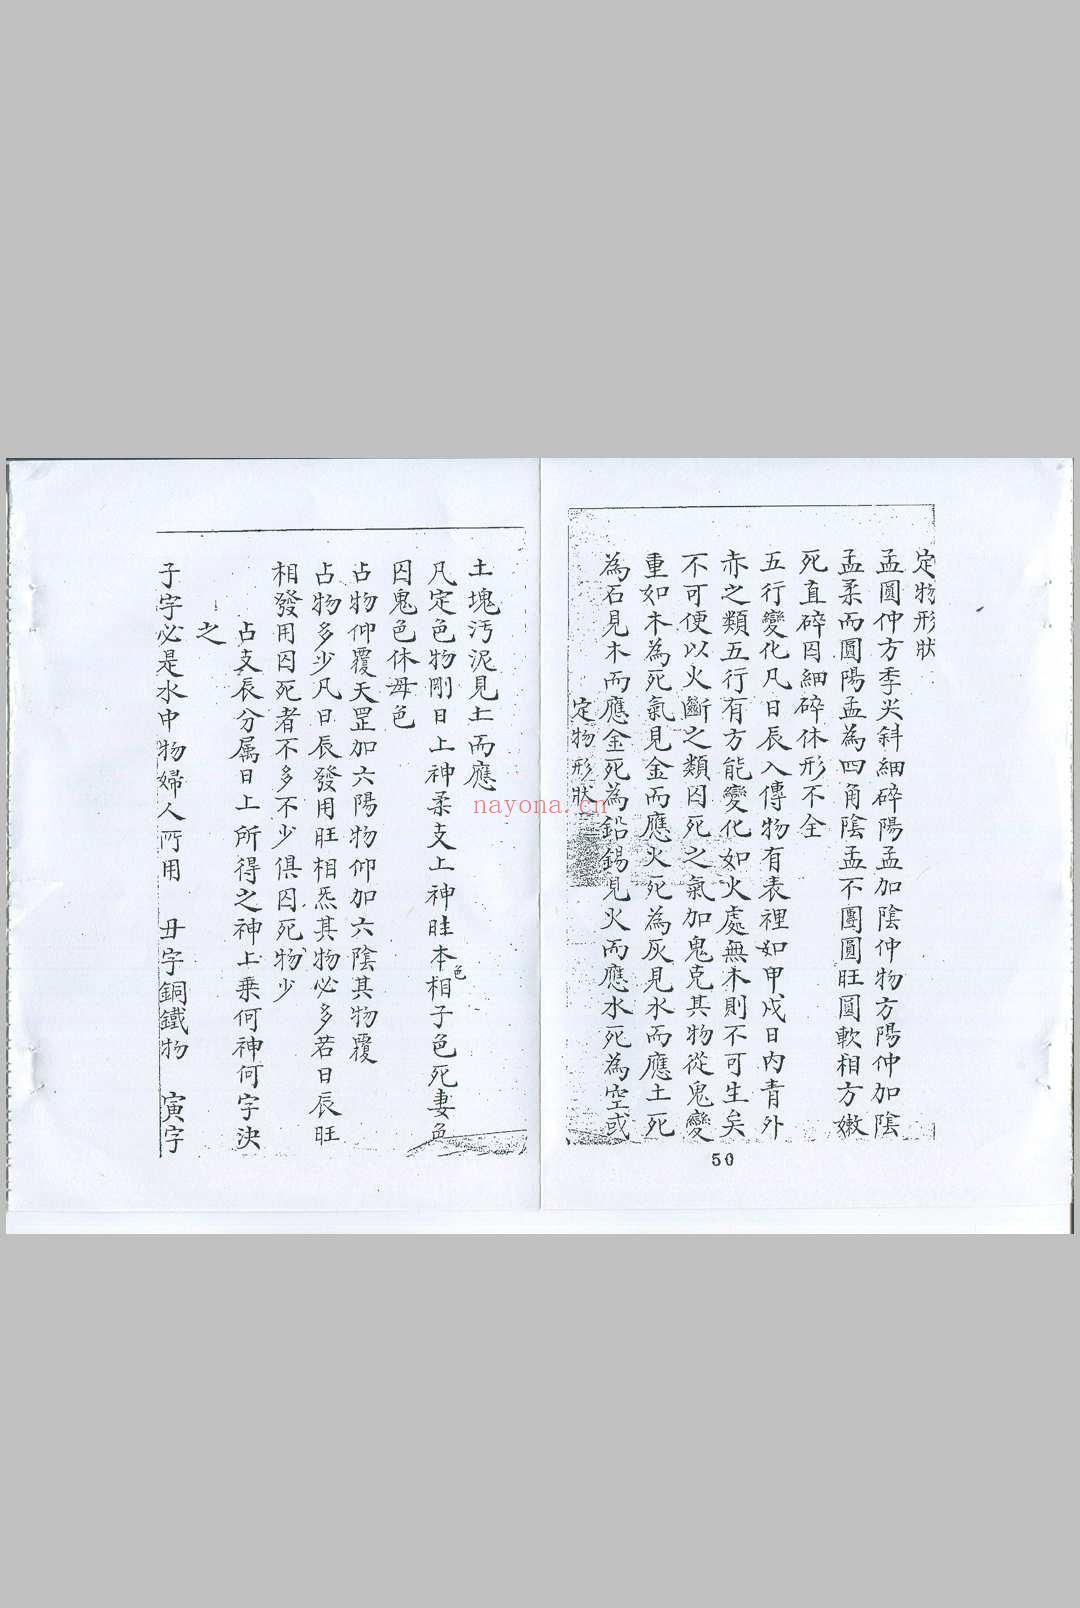 定物形狀
孟圓仲方季尖斜細碎陽孟加陰仲物方陽仲加陰
孟柔而圓陽孟為四角陰孟不團圓旺圓軟相方嫩
死直碎囚細碎休形不全
五行變化凡日辰入傳物有表裡如甲戌日內青外
赤之類五行有方能變化如火處無木則不可生矣
不可便以火斷之類囚死之氣加鬼克其物從鬼變
重如木為死氣見金而應火死為灰見水而應土死
為石見木而應金死為鉛錫見火而應水死為空或
定物形狀
50
土塊汚泥見土而應
凡定色物剛日上神柔支上神旺本色相子色死妻色
囚鬼色休母色
占物仰覆天罡加六陽物仰加六陰其物覆
占物多少凡日辰發用旺相炁其物必多若日辰旺
相發用囚死者不多不少俱囚死物少
占支辰分属日上所得之神上乗何神何字決
之
子字必是水中物婦人所用 丑字銅鐵物 寅字
nayona.cn